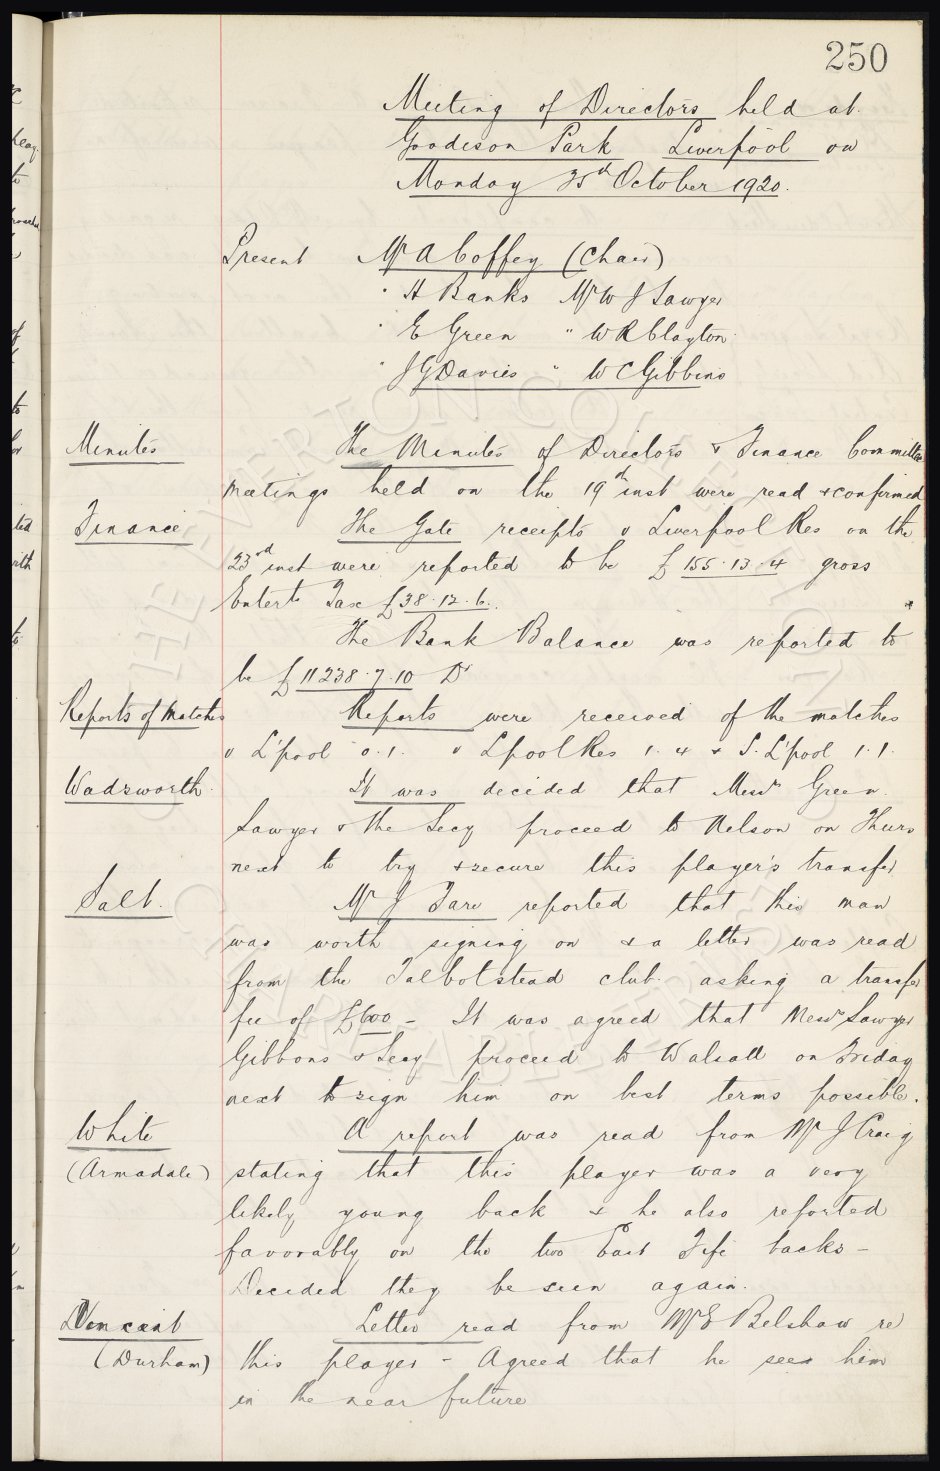 250
Meeting of Directors held at
Goodison Park Liverpool on
Monday 25th October 1920.
Present Mr A Coffey (Chair)
" H Banks Mr W J Sawyer
" E Green " W R Clayton
" J G Davies " W C Gibbins
Minutes The Minutes of Directors & Finance Committee
meetings held on the 19th inst were read & confirmed
Finance The Gate receipts v Liverpool Res on the
23rd inst were reported to be £155.13.4 gross
Entert Tax £38.12.6.
The Bank Balance was reported to
be £11238.7.10 Dr
Reports of Matches Reports were received of the matches
v L'pool 0.1. v Lpool Res 1.4 & S. L'pool 1.1.
Wadsworth It was decided that Messrs Green
Sawyer & the Secy proceed to Nelson on Thurs
next to try & secure this player's transfer
Salt. Mr J Tare reported that this man
was worth signing on & a letter was read
from the Talbotstead club asking a transfer
fee of £600 - It was agreed that Messrs Sawyer
Gibbons & Secy proceed to Walsall on Friday
next to sign him on best terms possible.
White A report was read from Mr J Craig
(Armadale) stating that this player was a very
likely young back & he also reported
favorably on the two East Fife backs -
Decided they be seen again.
Vincent Letter read from Mr E Belshaw re
(Durham) this player - Agreed that he sees him
in the near future